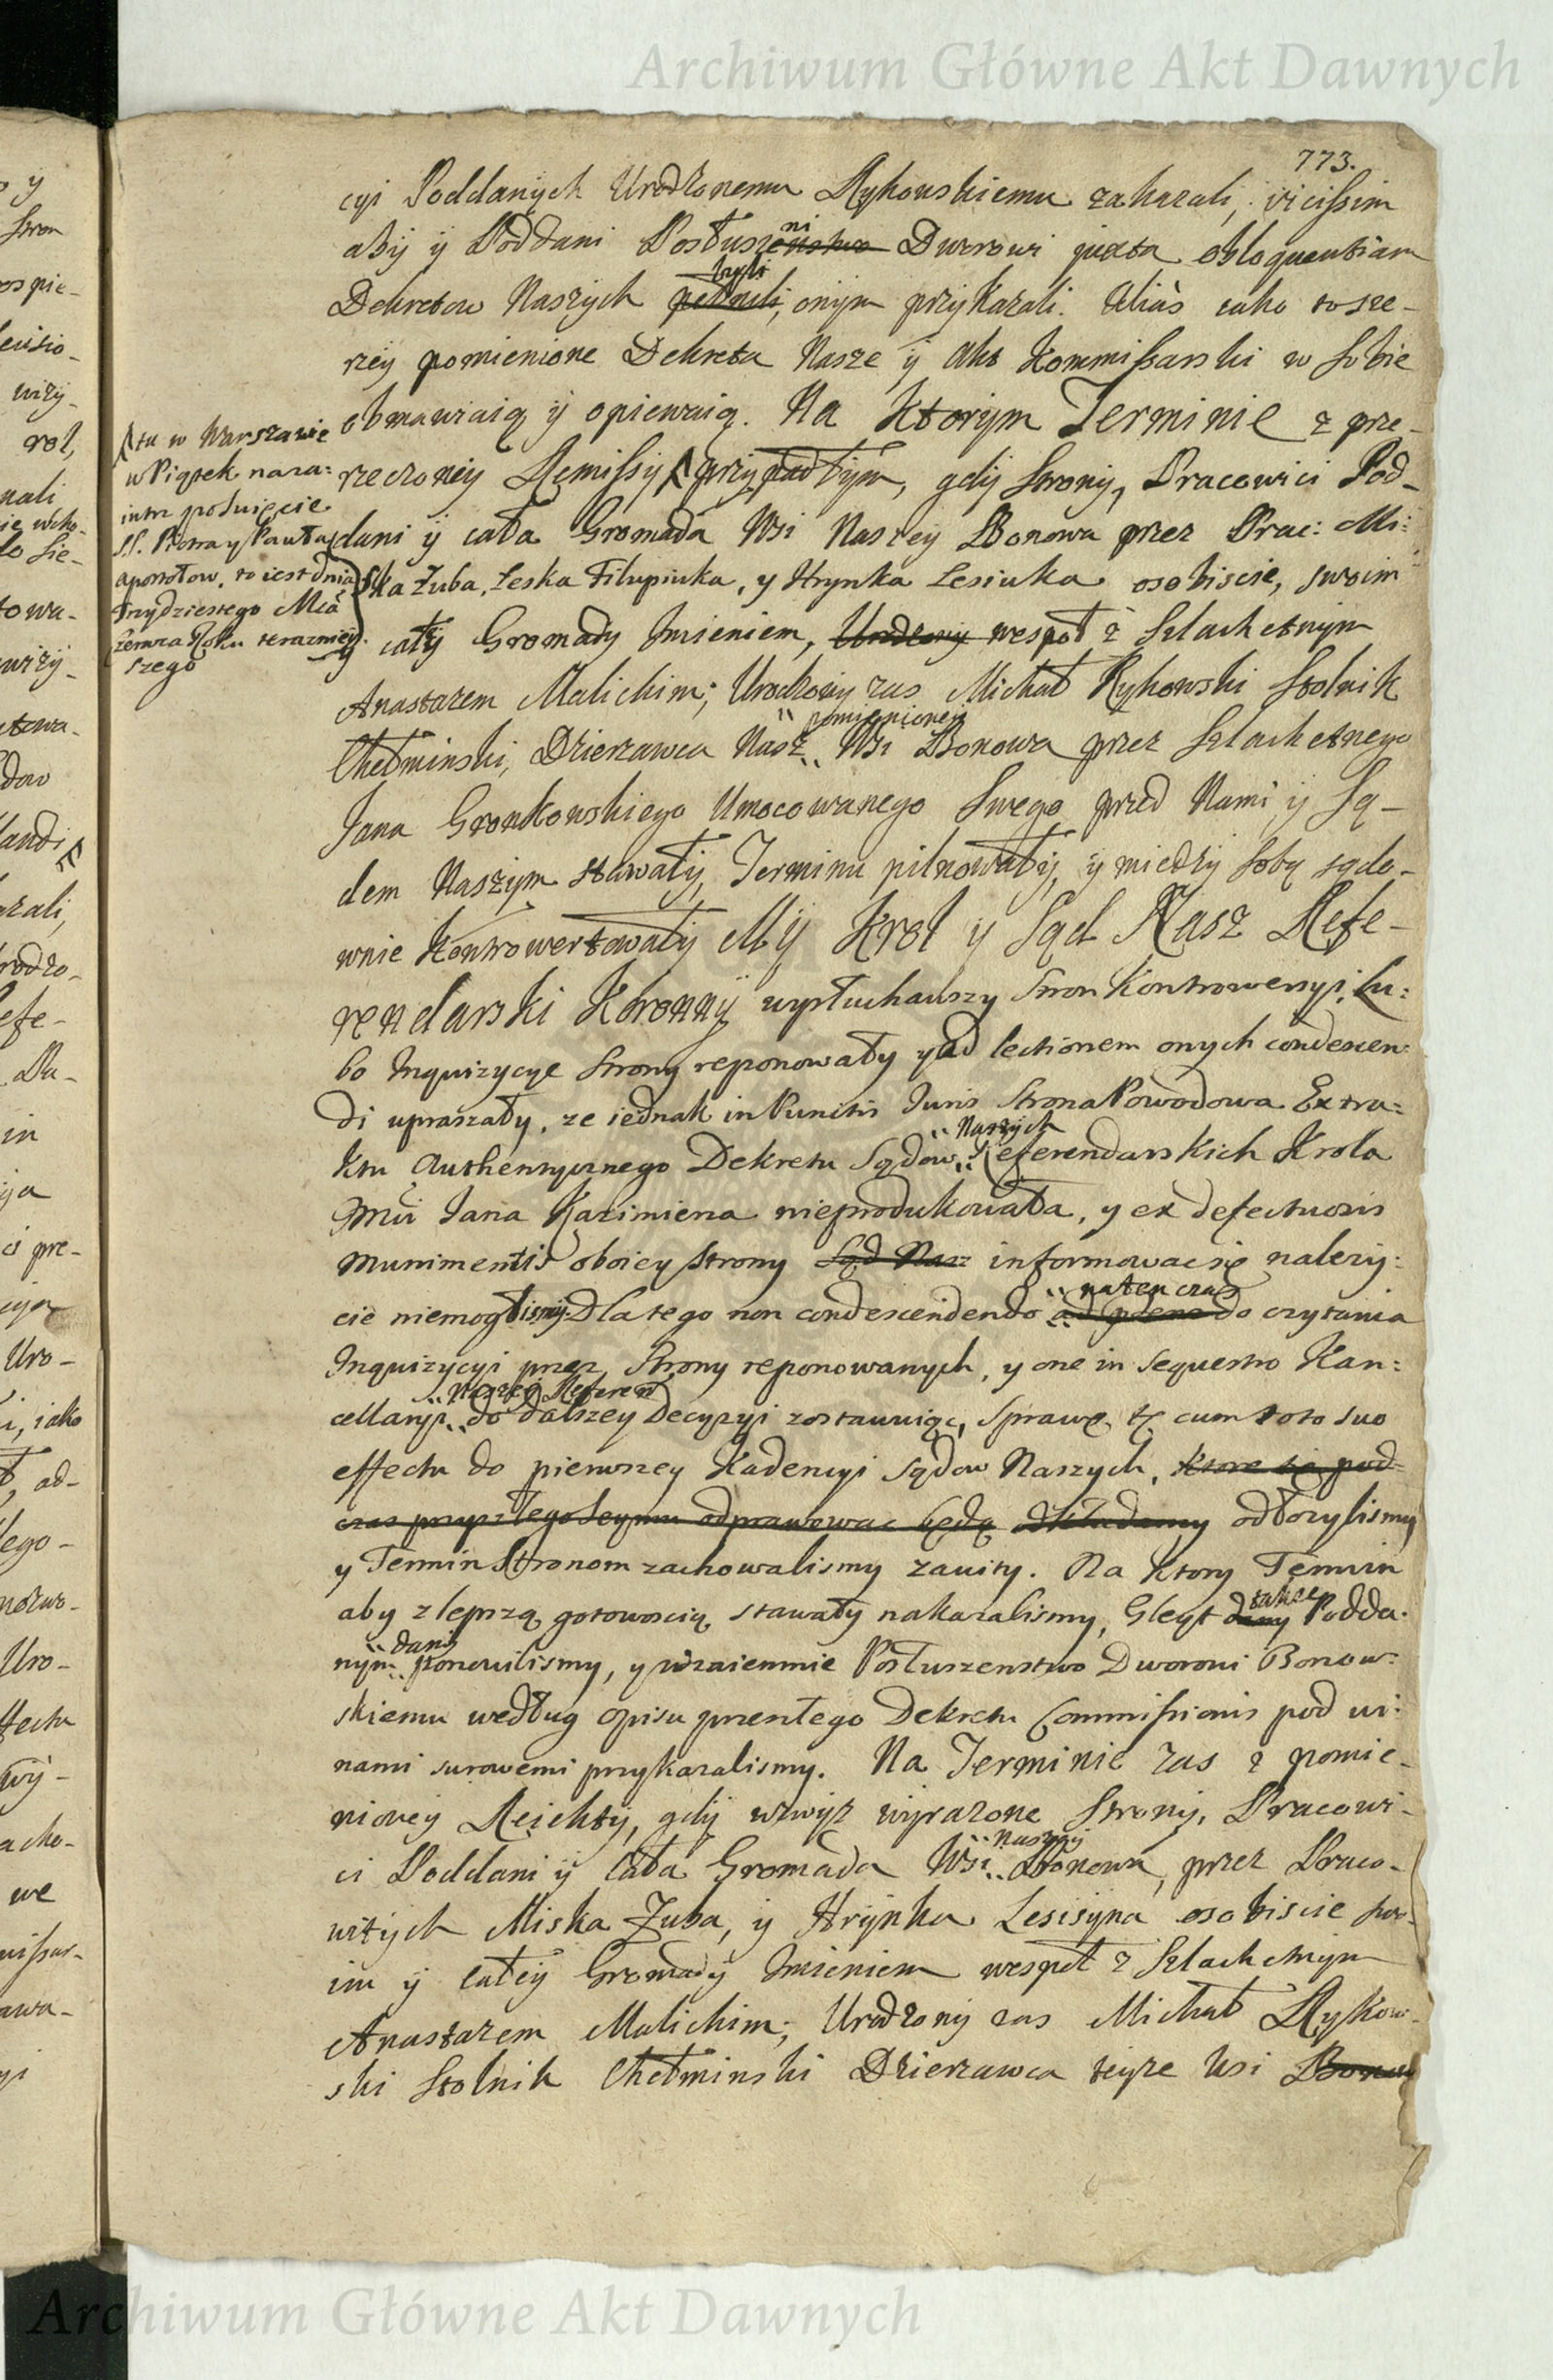 Archiwum Główne Akt Dawnych
773.
cyi Poddanych Urodzonemu Rykowskiemu zakazali, vicissim
aby y Poddani Posłuszeństwa ni Dworowi juxta obloquentiam
Dekretow Naszych byli, onym przykazali. Alias iako rosze-
rzey pomienione Dekreta Nasze y Akt Kommissarski w sobie
obmawiaią y opiewaią. Na ktorym Terminie z prze-
rzeczoney Remissy przypadłym, gdy Strony, Pracowici Pod-
dani y cała Gromada Wsi Naszey Bonowa przez Prac: Mi:
ska Zuba, Leska Filupiuka, y Hrynka Lesiuka osobiscie, swoim
y całey Gromady Imieniem, Urodzony wespoł z Szlachetnym
Anastazem Malickim; Urodzony zas Michał Rykowski Stolnik
Chełminski, Dzierzawca Nasz. pomienioney Wsi Bonowa przez Szlachetnego
Jana Gronkowskiego Umocowanego Swego przed Nami y Są-
dem Naszym stawały, Terminu pilnowały, y miedzy sobą sądo-
wnie kontrowertowały My Krol y Sąd Nasz Refe-
rendarski Koronny wysłuchawszy Stron Kontrowersyi, lu:
bo Inquizycye Strony reponowały y ad lectionem onych condescen:
di upraszały, ze iednak in Punctis Juris Strona Powodowa Extra:
ktu Authentycznego Dekretu Sądow Naszych Referendarskich Krola
Mci Jana Kazimierza nieprodukowała, y ex defectuosis
munimentis oboiey strony Sąd Nasz informowac się nalezy:
cie niemoglismy. Dlatego non condescendendo naten czas do czytania
Inquizycyi przez Strony reponowanych, y one in sequestro Kan:
cellaryi Naszey Referend do dalszey Decyzyi zostawuiąc, Sprawę tę cum toto suo
effectu do pierwszey Kadencyi Sądow Naszych, ktore się pod=
czas przyszłego Seymu odprawowac będą odkładamy odłozylismy
y Termin Stronom zachowalismy zawity. Na ktory Termin
aby z lepszą gotowoscią stawały nakazalismy, Gleyt dany takze Podda:
nym dany ponowilismy, y wzaiemnie Posłuszenstwo Dworowi Bonow:
skiemu według opisu przeszłego Dekretu Commissionis pod wi:
nami surowemi przykazalismy. Na Terminie zas z pomie-
nioney Reiekty, gdy wzwyz wyrazone Strony, Pracowi-
ci Poddani y cała Gromada Wsi Naszey Bonowa, przez Praco-
witych Miska Zuba, y Hrynka Lesisyna osobiscie swo-
im y całey Gromady Imieniem wespoł z Szlachetnym
Anastazem Malickim; Urodzony zas Michał Rykow-
ski Stolnik Chełminski Dzierzawca teyze Wsi Bonow
tu w Warszawie
w Piątek naza:
iutrz po Swięcie
SS. Piotra y Pawła
Apostołow, to iest dnia
trzydziestego Mca
Czerwca Roku terazniey
szego
Archiwum Główne Akt Dawnych